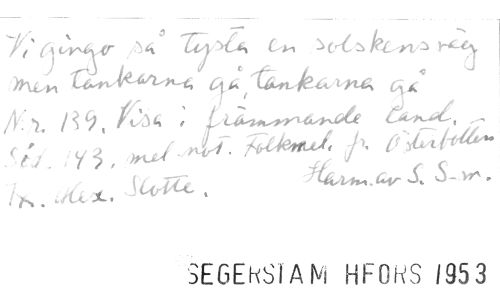 Vi gingo så tysta en solskensväg
men tankarna gå, tankarna gå
Nr. 139. Visa i främmande land.
Sid. 143. mel. not. Folkmel. fr. Österbotten
Tx. Alex. Slotte. Harm. av S. S-m.
SEGERSTAM HFORS 1953